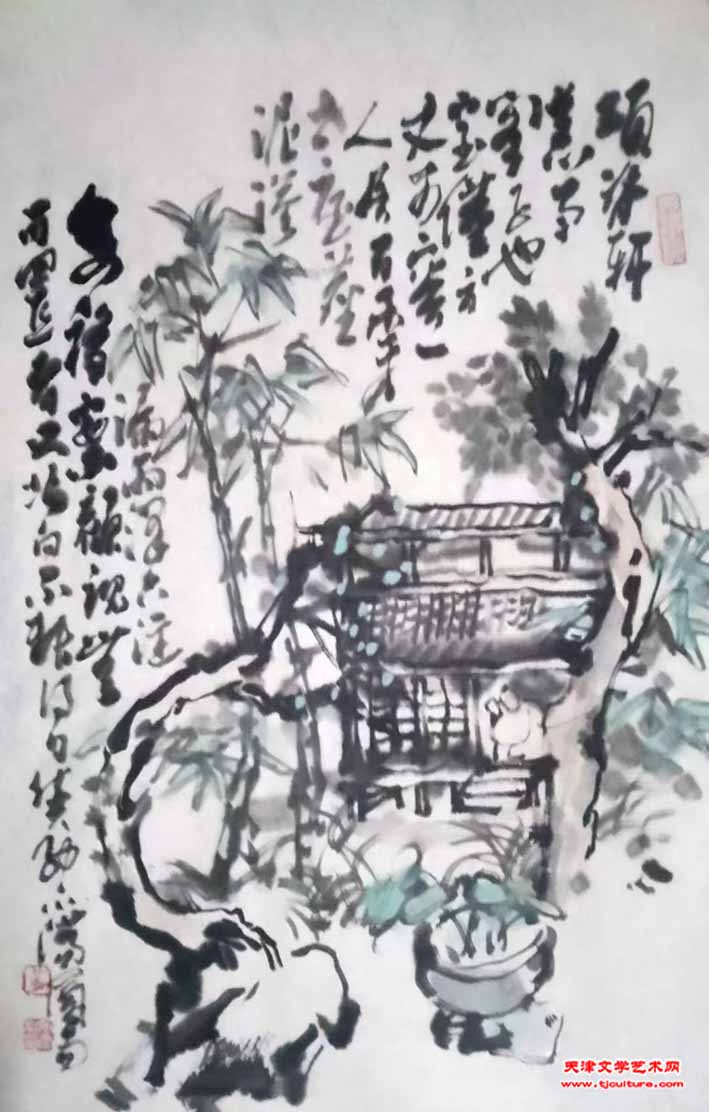 项脊轩
旧南
阁子也
室仅方
丈可容一
人居百年
老屋尘
泥渗
漉雨泽下注
每移案顾视无
可置者又北向不能得日
天津文学艺术网
www.tjculture.com